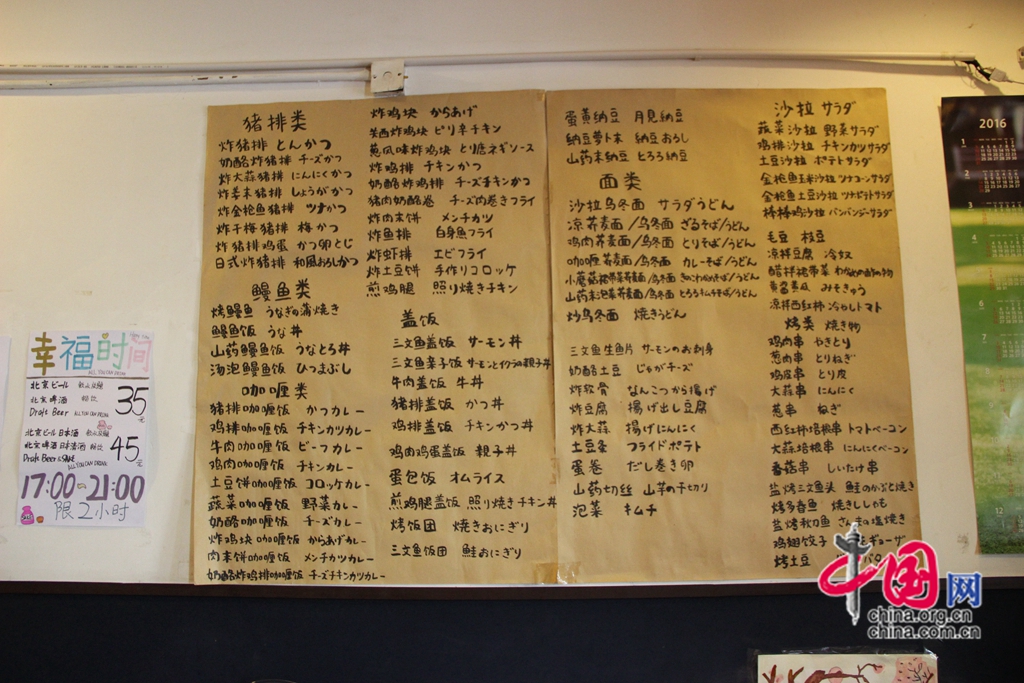 猪排类
炸猪排 とんかつ
奶酪炸猪排 チーズかつ
炸大蒜猪排 にんにくかつ
炸姜末猪排 しょうがかつ
炸金枪鱼猪排 ツナかつ
炸干梅猪排 梅かつ
炸猪排鸡蛋 かつ卵とじ
日式炸猪排 和風おろしかつ
鳗鱼类
烤鳗鱼 うなぎの蒲焼き
鳗鱼饭 うな丼
山药鳗鱼饭 うなとろ丼
汤泡鳗鱼饭 ひつまぶし
咖喱类
猪排咖喱饭 かつカレー
鸡排咖喱饭 チキンカツカレー
牛肉咖喱饭 ビーフカレー
鸡肉咖喱饭 チキンカレー
土豆饼咖喱饭 コロッケカレー
蔬菜咖喱饭 野菜カレー
奶酪咖喱饭 チーズカレー
炸鸡块咖喱饭 からあげカレー
肉末饼咖喱饭 メンチカツカレー
奶酪炸鸡排咖喱饭 チーズチキンカツカレー
炸鸡块 からあげ
炸鸡块 ピリ辛チキン
葱风味炸鸡块 とり唐ネギソース
炸鸡排 チキンかつ
奶酪炸鸡排 チーズチキンかつ
猪肉奶酪卷 チーズ肉巻きフライ
炸肉末饼 メンチカツ
炸鱼排 白身魚フライ
炸虾排 エビフライ
炸土豆饼 手作りコロッケ
煎鸡腿 照り焼きチキン
盖饭
三文鱼盖饭 サーモン丼
三文鱼亲子饭 サーモンとイクラの親子丼
牛肉盖饭 牛丼
猪排盖饭 かつ丼
鸡排盖饭 チキンかつ丼
鸡肉鸡蛋盖饭 親子丼
蛋包饭 オムライス
煎鸡腿盖饭 照り焼きチキン丼
烤饭团 焼きおにぎり
三文鱼饭团 鮭おにぎり
蛋黄纳豆 月見納豆
纳豆萝卜末 納豆おろし
山药末纳豆 とろろ納豆
面类
沙拉乌冬面 サラダうどん
凉荞麦面/乌冬面 ざるそば/うどん
鸡肉荞麦面/乌冬面 とりそば/うどん
咖喱荞麦面/乌冬面 カレーそば/うどん
小蘑菇裙带菜荞麦面/乌冬面 きのこわかめそば/うどん
山药末泡菜荞麦面/乌冬面 とろろキムチそば/うどん
炒乌冬面 焼きうどん
三文鱼生鱼片 サーモンのお刺身
奶酪土豆 じゃがチーズ
炸软骨 なんこつから揚げ
炸豆腐 揚げ出し豆腐
炸大蒜 揚げにんにく
土豆条 フライドポテト
蛋卷 だし巻き卵
山药切丝 山芋の千切り
泡菜 キムチ
沙拉 サラダ
蔬菜沙拉 野菜サラダ
鸡排沙拉 チキンカツサラダ
土豆沙拉 ポテトサラダ
金枪鱼玉米沙拉 ツナコーンサラダ
金枪鱼土豆沙拉 ツナポテトサラダ
棒棒鸡沙拉 バンバンジーサラダ
毛豆 枝豆
凉拌豆腐 冷奴
醋拌裙带菜 わかめの酢の物
黄瓜 みそきゅう
凉拌西红柿 冷やしトマト
烤类 焼き物
鸡肉串 やきとり
葱肉串 とりねぎ
鸡皮串 とり皮
大蒜串 にんにく
葱串 ねぎ
西红柿培根串 トマトベーコン
大蒜培根串 にんにくベーコン
香菇串 しいたけ串
盐烤三文鱼头 鮭のかぶと焼き
烤多春鱼 焼きししゃも
盐烤秋刀鱼 さんまの塩焼き
鸡翅饺子 ギョーザ
烤土豆
幸福时间
ALL YOU CAN DRINK
北京ビール 飲み放題
北京啤酒 畅饮
Draft Beer ALL YOU CAN DRINK
35元
北京ビール 日本酒 飲み放題
北京啤酒 日本清酒 畅饮
Draft Beer & SAKE
ALL YOU CAN DRINK
45元
17:00~21:00
限2小时
2016
中国网
china.org.cn
china.com.cn